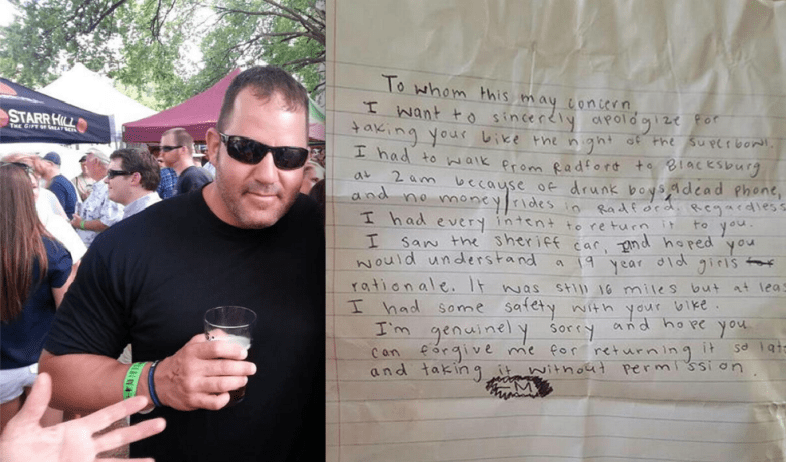 STARR HILL
THE GIFT OF GREAT BEER
To whom this may concern,
I want to sincerely apologize for
taking your bike the night of the superbowl.
I had to walk from Radford to Blacksburg
at 2am because of drunk boys, a dead phone,
and no money/rides in Radford. Regardless
I had every intent to return it to you.
I saw the sheriff car, and hoped you
would understand a 19 year old girls
rationale. It was still 16 miles but at leas
I had some safety with your bike.
I'm genuinely sorry and hope you
can forgive me for returning it so late
and taking it without permission.
- M